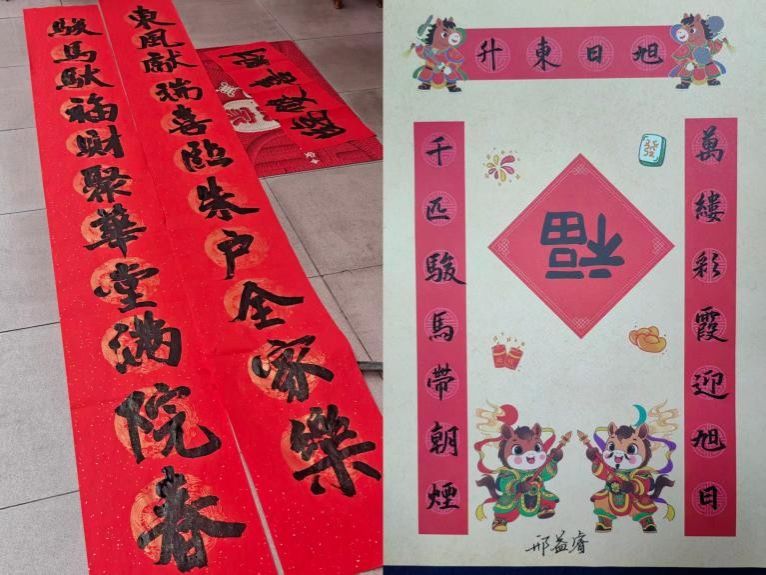 東風獻瑞喜臨朱户全家樂
駿馬馱福財聚華堂滿院春
旭日東升
萬縷彩霞迎旭日
千匹駿馬帶朝煙
福
發
邢益睿